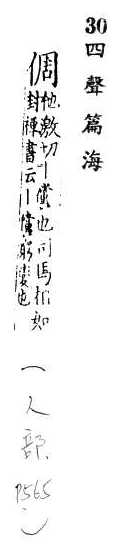 30 四聲篇海
倜 他激切丨儻也司馬相如
封禪書云丨儻窮變也
(人部 P565)